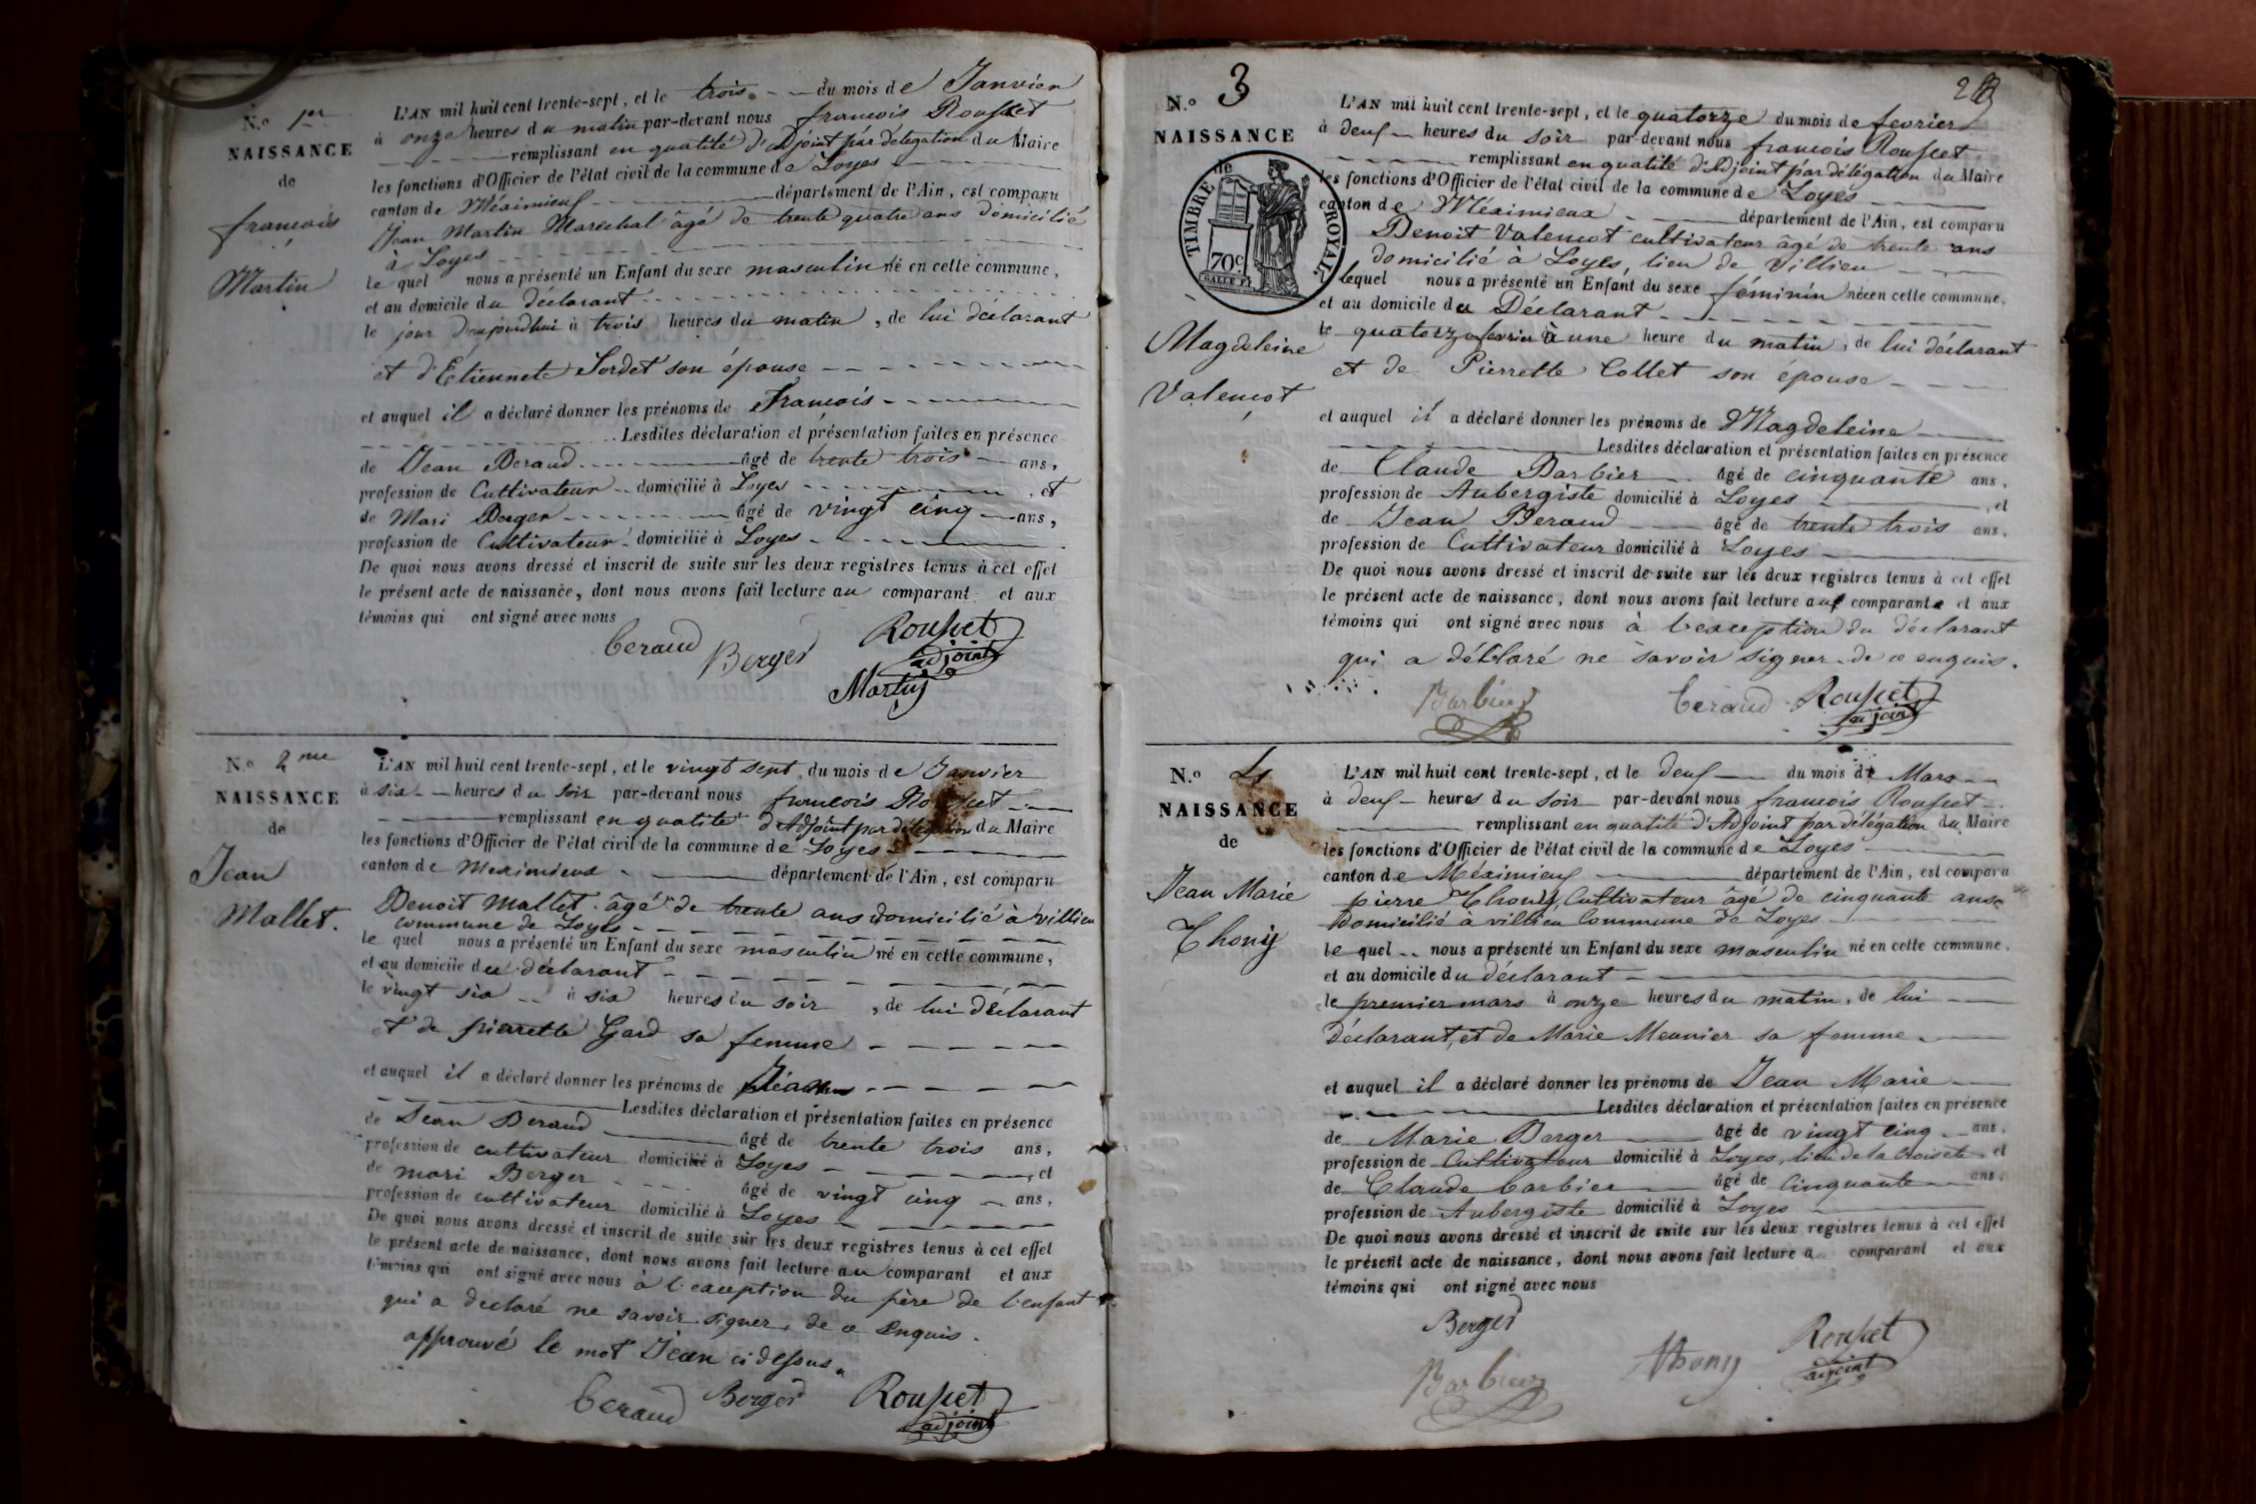 N.o 1er
NAISSANCE
de
françois
Martin
L'AN mil huit cent trente-sept, et le trois du mois de Janvier
à onze heures du matin par-devant nous françois Rousset
remplissant en qualité d'Adjoint par délégation du Maire
les fonctions d'Officier de l'état civil de la commune de Loyes
canton de Méximieux département de l'Ain, est comparu
Jean Martin Marechal âgé de trente quatre ans domicilié
à Loyes
le quel nous a présenté un Enfant du sexe masculin né en cette commune,
et au domicile du déclarant
le jour d'aujourdhui à trois heures du matin, de lui déclarant
et d'Étiennete Sordet son épouse
et auquel il a déclaré donner les prénoms de François
Lesdites déclaration et présentation faites en présence
de Jean Beraud âgé de trente trois ans,
profession de Cultivateur domicilié à Loyes, et
de Mari Berger âgé de vingt cinq ans,
profession de Cultivateur domicilié à Loyes
De quoi nous avons dressé et inscrit de suite sur les deux registres tenus à cet effet
le présent acte de naissance, dont nous avons fait lecture au comparant et aux
témoins qui ont signé avec nous
beraud Berger Rousset
adjoint
Martin
N.o 2me
NAISSANCE
de
Jean
Mallet.
L'AN mil huit cent trente-sept, et le vingt sept du mois de Janvier
à six heures du soir par-devant nous françois Rousset
remplissant en qualité d'Adjoint par délégation du Maire
les fonctions d'Officier de l'état civil de la commune de Loyes
canton de Meximieux département de l'Ain, est comparu
Benoit Mallet âgé de trente ans domicilié à villieu
commune de Loyes
le quel nous a présenté un Enfant du sexe masculin né en cette commune,
et au domicile du déclarant
le vingt six à six heures du soir, de lui déclarant
et de pierrette Gard sa femme
et auquel il a déclaré donner les prénoms de Jean
Lesdites déclaration et présentation faites en présence
de Jean Beraud âgé de trente trois ans,
profession de cultivateur domicilié à Loyes, et
de mari Berger âgé de vingt cinq ans,
profession de cultivateur domicilié à Loyes
De quoi nous avons dressé et inscrit de suite sur les deux registres tenus à cet effet
le présent acte de naissance, dont nous avons fait lecture au comparant et aux
témoins qui ont signé avec nous à l'exception du père de l'enfant
qui a declaré ne savoir signer, de ce enquis.
approuvé le mot Jean ci dessus.
beraud Berger Rousset
adjoint
N.o 3
NAISSANCE
de
TIMBRE ROYAL
70c
Magdeleine
Valençot
L'AN mil huit cent trente-sept, et le quatorze du mois de fevrier
à deux heures du soir par-devant nous françois Rousset
remplissant en qualité d'Adjoint par délégation du Maire
les fonctions d'Officier de l'état civil de la commune de Loyes
canton de Méximieux département de l'Ain, est comparu
Benoit Valençot cultivateur âgé de trente ans
domicilié à Loyes, lieu de Villieu
lequel nous a présenté un Enfant du sexe féminin née en cette commune,
et au domicile du Déclarant
le quatorze fevrier à une heure du matin, de lui déclarant
et de Pierrette Collet son épouse
et auquel il a déclaré donner les prénoms de Magdeleine
Lesdites déclaration et présentation faites en présence
de Claude Barbier âgé de cinquante ans,
profession de Aubergiste domicilié à Loyes, et
de Jean Beraud âgé de trente trois ans,
profession de Cultivateur domicilié à Loyes
De quoi nous avons dressé et inscrit de suite sur les deux registres tenus à cet effet
le présent acte de naissance, dont nous avons fait lecture aux comparants et aux
témoins qui ont signé avec nous à l'exception du déclarant
qui a déclaré ne savoir signer de ce enquis.
Barbier beraud Rousset
adjoint
N.o 4
NAISSANCE
de
Jean Marie
Thony
L'AN mil huit cent trente-sept, et le deux du mois de Mars
à deux heures du soir par-devant nous françois Rousset
remplissant en qualité d'Adjoint par délégation du Maire
les fonctions d'Officier de l'état civil de la commune de Loyes
canton de Méximieux département de l'Ain, est comparu
pierre Thony, Cultivateur âgé de cinquante ans
domicilié à villieu Commune de Loyes
le quel nous a présenté un Enfant du sexe masculin né en cette commune,
et au domicile du déclarant
le premier mars à onze heures du matin, de lui
déclarant, et de Marie Meunier sa femme
et auquel il a déclaré donner les prénoms de Jean Marie
Lesdites déclaration et présentation faites en présence
de Marie Berger âgé de vingt cinq ans,
profession de Cultivateur domicilié à Loyes, lieu de la Croisete, et
de Claude barbier âgé de cinquante ans,
profession de Aubergiste domicilié à Loyes
De quoi nous avons dressé et inscrit de suite sur les deux registres tenus à cet effet
le présent acte de naissance, dont nous avons fait lecture a comparant et aux
témoins qui ont signé avec nous
Berger
Barbier Thony Rousset
adjoint